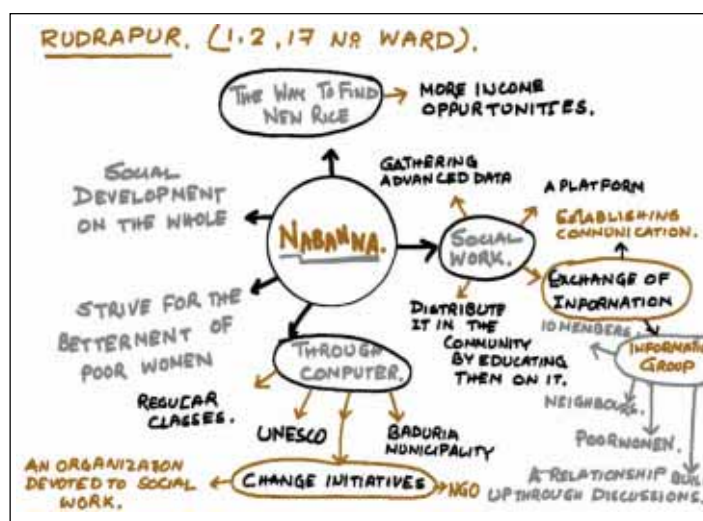 RUDRAPUR. (1,2,17 NO WARD).
THE WAY TO FIND
NEW RICE
MORE INCOME
OPPURTUNITIES.
SOCIAL
DEVELOPMENT
ON THE WHOLE
GATHERING
ADVANCED DATA
A PLATFORM
ESTABLISHING
COMMUNICATION.
NABANNA.
SOCIAL
WORK.
EXCHANGE OF
INFORMATION
STRIVE FOR THE
BETTERMENT OF
POOR WOMEN
DISTRIBUTE
IT IN THE
COMMUNITY
BY EDUCATING
THEM ON IT.
10 MEMBERS.
INFORMATI
GROUP
THROUGH
COMPUTER.
NEIGHBOURS
REGULAR
CLASSES.
UNESCO
BADURIA
MUNICIPALITY
POOR WOMEN.
AN ORGANIZATION
DEVOTED TO SOCIAL
WORK.
CHANGE INITIATIVES
NGO
A RELATIONSHIP BUIL
UP THROUGH DISCUSSIONS.